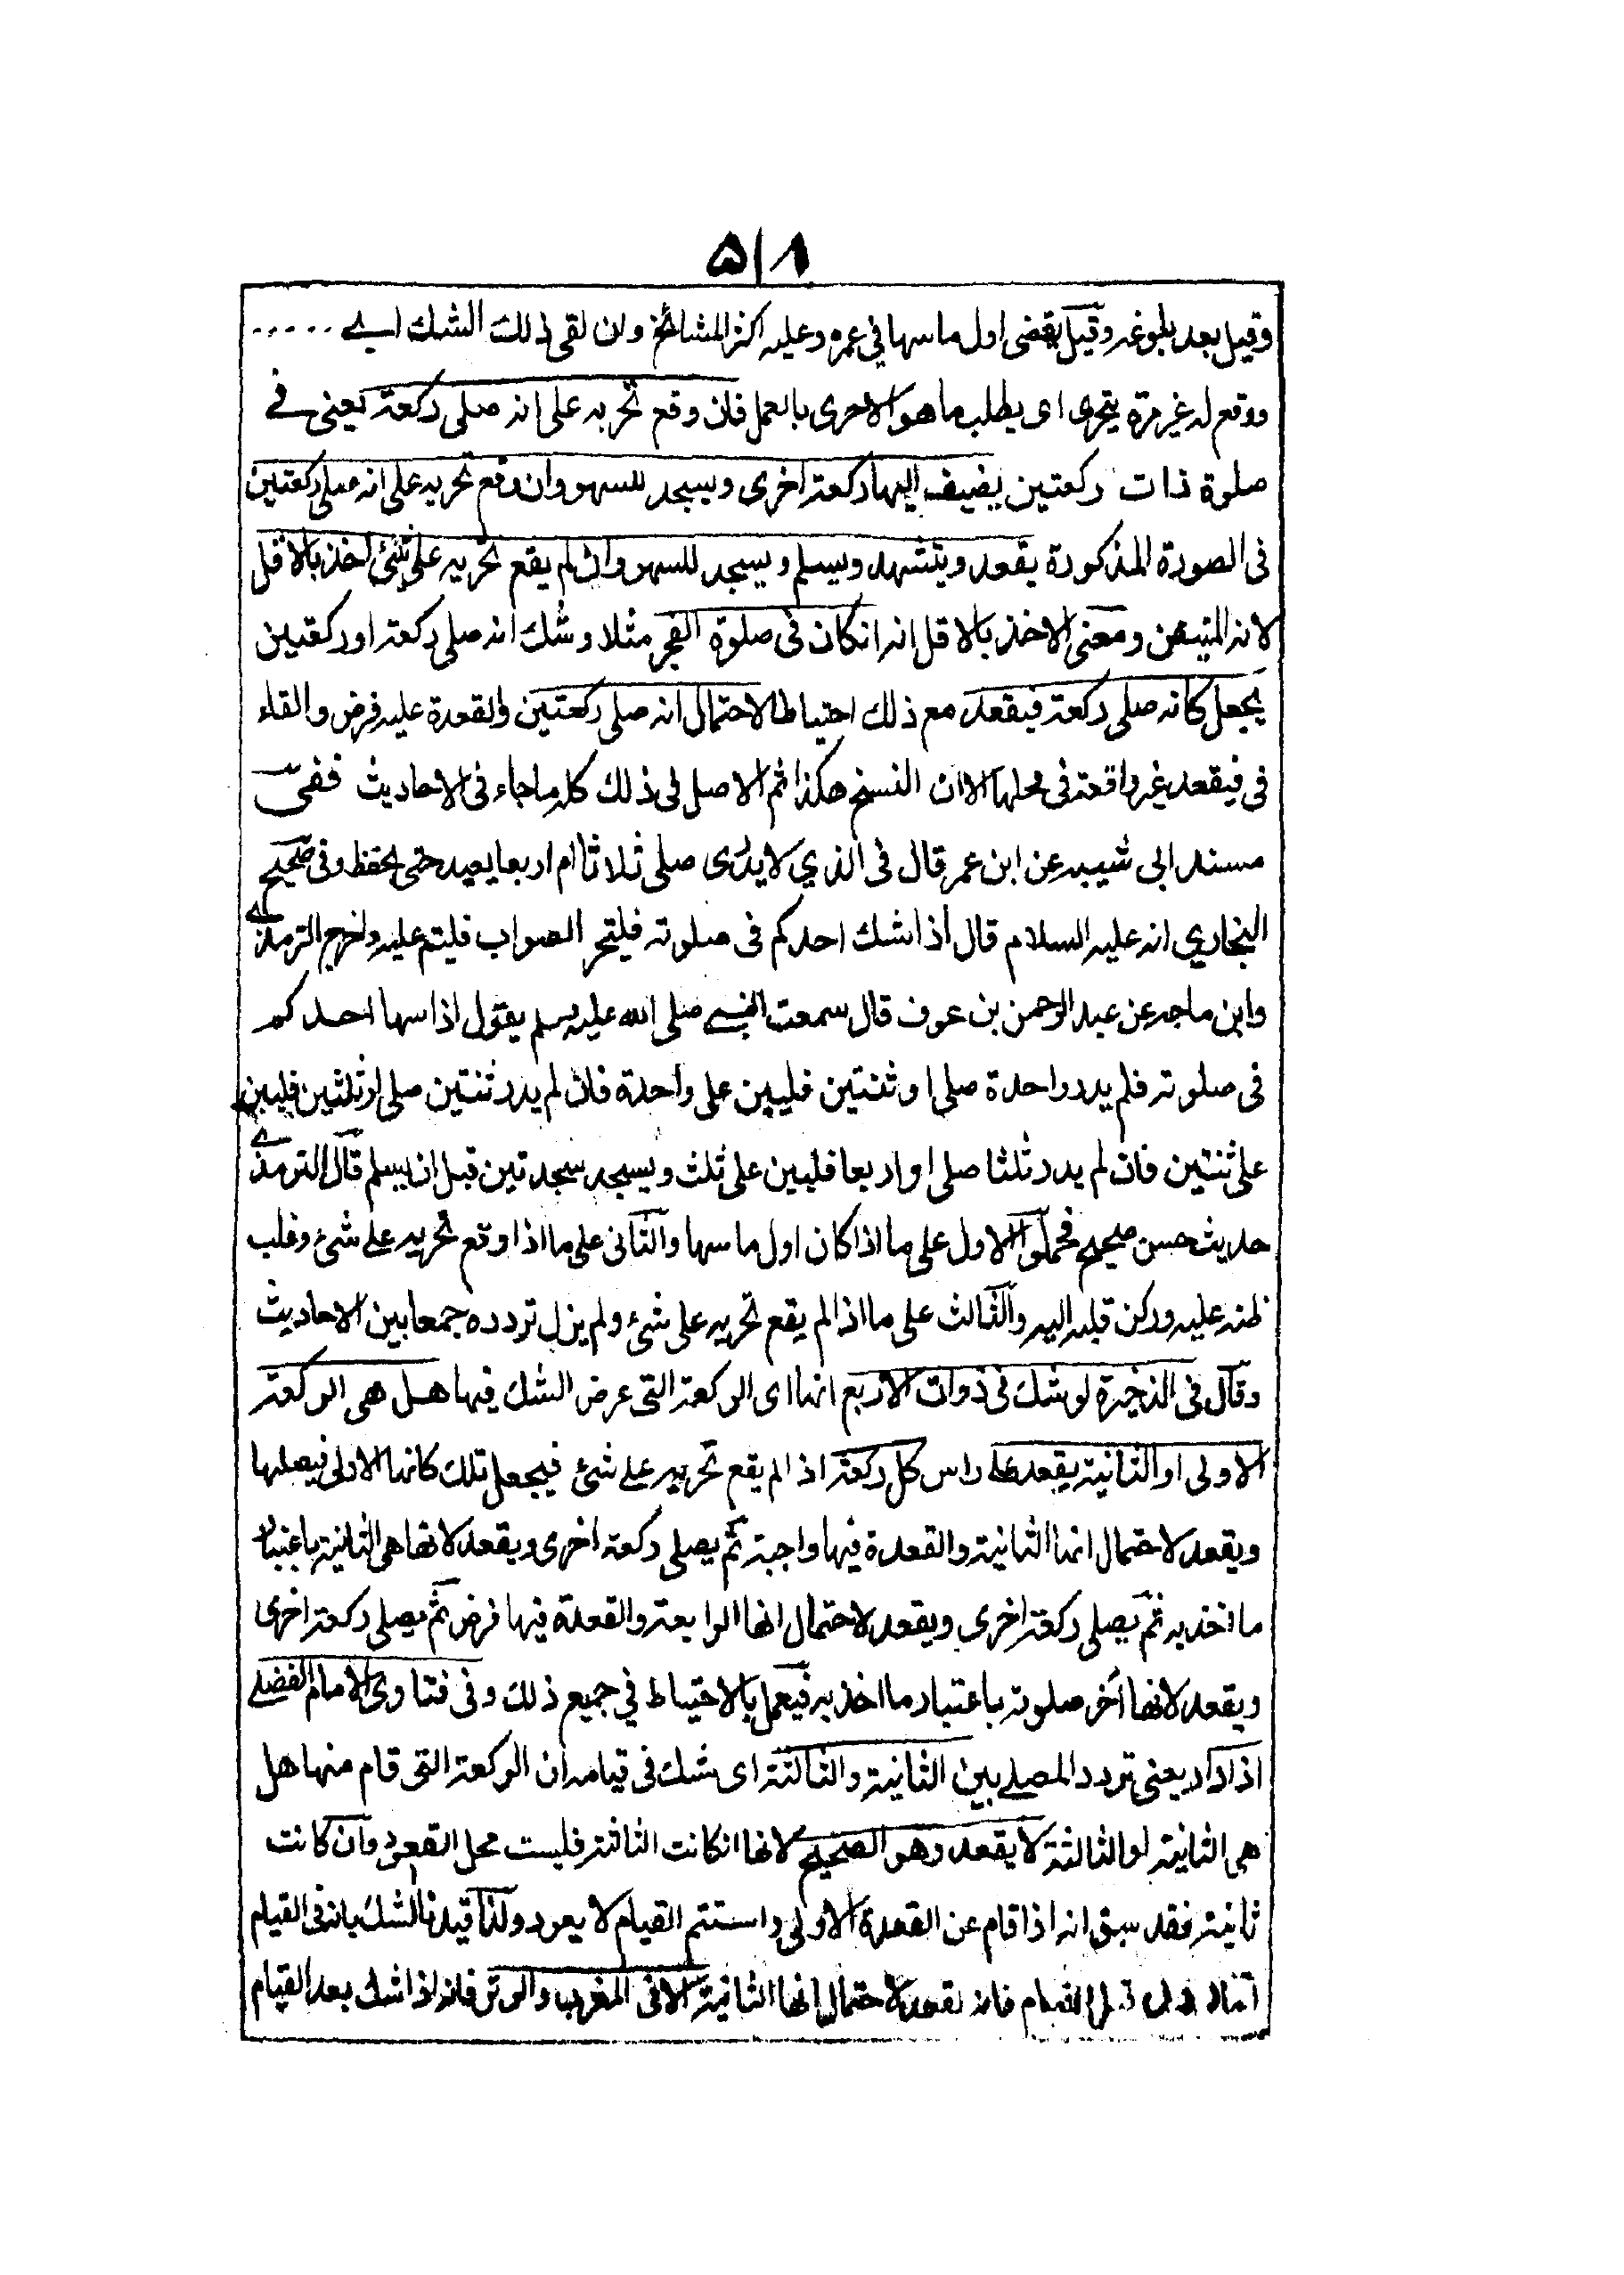 ۵۱۸
وقيل بعد بلوغه وقيل يقضى اول ما سها في عمره وعليه اكثر المشائخ وان لقى ذلك الشك اى .....
ووقع له غير مرة يتحرى اى يطلب ما هو الاحرى بالعمل فان وقع تحريه على انه صلى ركعة يعنى فى
صلوة ذات ركعتين يضيف اليها ركعة اخرى ويسجد للسهو وان وقع تحريه على انه صلى ركعتين
فى الصورة المذكورة يقعد ويتشهد ويسلم ويسجد للسهو وان لم يقع تحريه على شئ اخذ بالاقل
لانه المتيقن ومعنى الاخذ بالاقل انه انكان فى صلوة الفجر مثلا وشك انه صلى ركعة او ركعتين
يجعل كانه صلى ركعة فيقعد مع ذلك احتياطا لاحتمال انه صلى ركعتين والقعدة عليه فرض والفاء
فى فيقعد غير واقعة فى محلها الا ان النسخ هكذا ثم الاصل فى ذلك كله ما جاء فى الاحاديث ففى
مسند ابى شيبه عن ابن عمر قال فى الذي لا يدرى صلى ثلاثا ام اربعا يعيد حتى يحفظ وفى صحيح
البخاري انه عليه السلام قال اذا شك احدكم فى صلوته فليتحر الصواب فليتم عليه واخرج الترمذى
وابن ماجه عن عبد الرحمن بن عوف قال سمعت النبى صلى الله عليه وسلم يقول اذا سها احدكم
فى صلوته فلم يدر واحدة صلى او ثنتين فليبن على واحدة فان لم يدر ثنتين صلى او ثلثين فليبن
على ثنتين فان لم يدر ثلثا صلى او اربعا فليبن على ثلث ويسجد سجدتين قبل ان يسلم قال الترمذى
حديث حسن صحيح فحملوا الاول على ما اذا كان اول ما سها والثانى على ما اذا وقع تحريه على شئ وغلب
ظنه عليه وركن قلبه اليه والثالث على ما اذا لم يقع تحريه على شئ ولم يزل تردده جمعا بين الاحاديث
وقال فى الذخيرة لو شك فى ذوات الاربع انها اى الركعة التى عرض الشك فيها هل هى الركعة
الاولى او الثانية يقعد على راس كل ركعة اذا لم يقع تحريه على شئ فيجعل تلك كانها الاولى فيصليها
ويقعد لاحتمال انها الثانية والقعدة فيها واجبة ثم يصلى ركعة اخرى ويقعد لانها هى الثانية باعتبار
ما اخذ به ثم يصلى ركعة اخرى ويقعد لاحتمال انها الرابعة والقعدة فيها فرض ثم يصلى ركعة اخرى
ويقعد لانها آخر صلوته باعتبار ما اخذ به فيعمل بالاحتياط في جميع ذلك وفى فتاوى الامام الفضلى
اذا دار يعنى تردد المصلى بين الثانية والثالثة اى شك فى قيامه ان الركعة التى قام منها هل
هى الثانية او الثالثة لا يقعد وهو الصحيح لانها انكانت الثالثة فليست محل القعود وان كانت
ثانية فقد سبق انه اذا قام عن القعدة الاولى واستتم القيام لا يعود ولذا قيدنا الشك بانه فى القيام
قبل القيام فانه يقعد لاحتمال انها الثانية الا فى المغرب والوتر فانه اذا شك بعد القيام